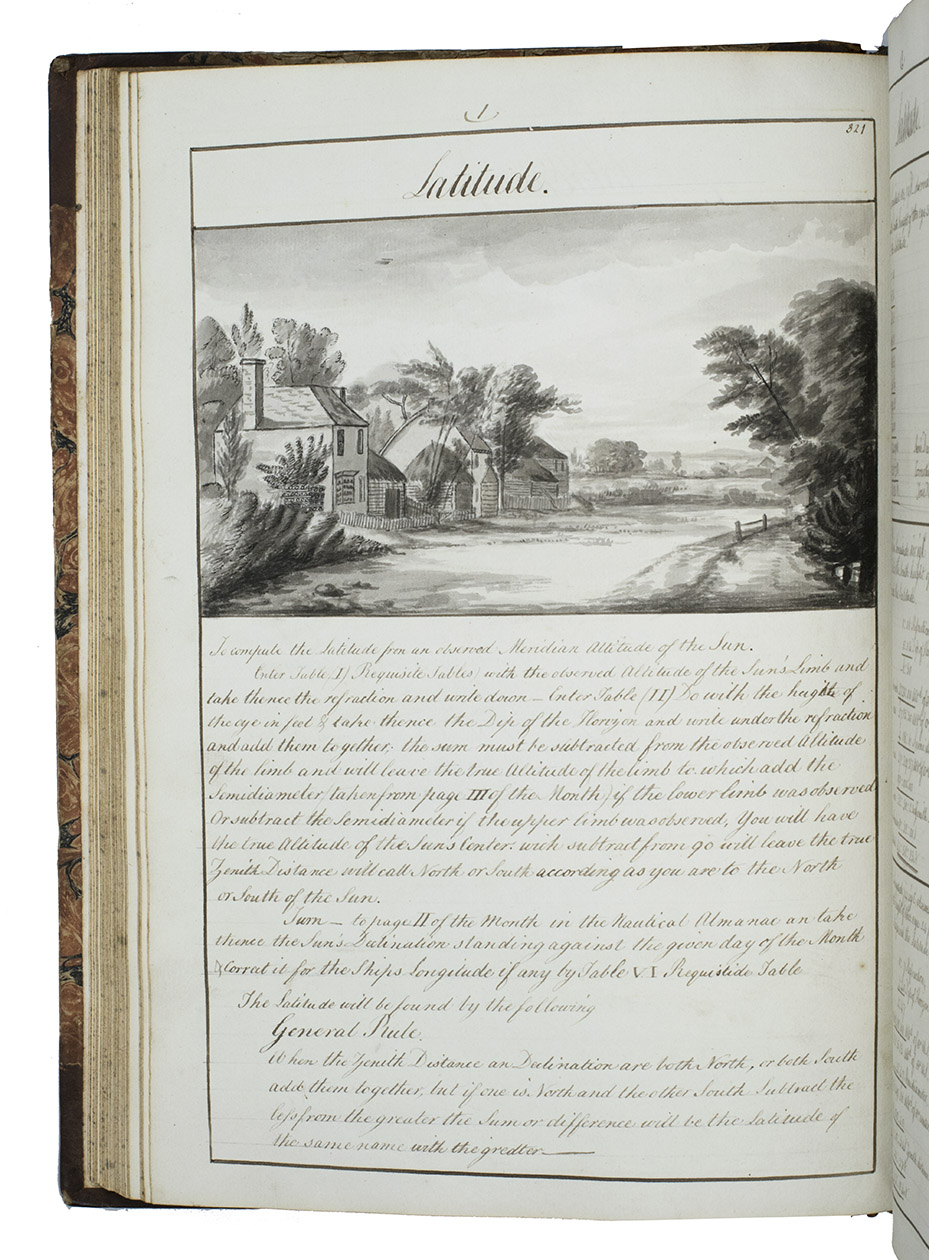 1
321
Latitude.
To compute the Latitude from an observed Meridian Altitude of the Sun.
Enter Table (I) Requisite Tables) with the observed Altitude of the Sun's Limb and
take thence the refraction and write down – Enter Table (II) Do with the height of
the eye in feet & take thence the Dip of the Horizon and write under the refraction
and add them together, the sum must be subtracted from the observed Altitude
of the limb and will leave the true Altitude of the limb to which add the
Semidiameter (taken from page III of the Month) if the lower limb was observed
Or subtract the Semidiameter if the upper limb was observed, you will have
the true Altitude of the Sun's Center. wich subtract from 90 will leave the true
Zenith Distance will call North or South according as you are to the North
or South of the Sun.
Turn – to page II of the Month in the Nautical Almanac an take
thence the Sun's Declination standing against the given day of the Month
& Correct it for the Ships Longitude if any by Table VI Requistide Table
The Latitude will be found by the following
General Rule.
When the Zenith Distance an Declination are both North, or both South
add them together, but if one is North and the other South Subtract the
less from the greater the Sum or difference will be the Latitude of
the same name with the greater